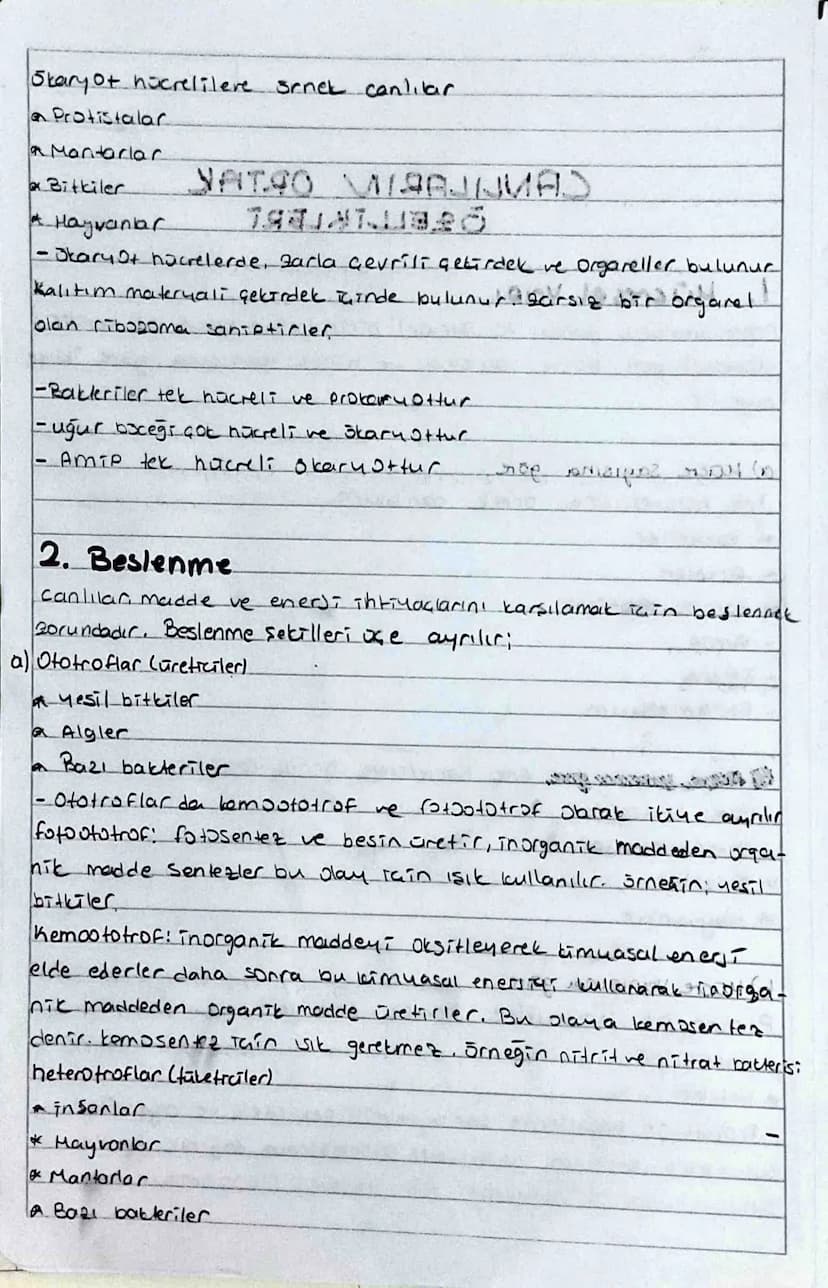 Ökaryot hücrelilere örnek canlılar
* Protistalar
* Mantarlar
* Bitkiler
* Hayvanlar
- Ökaryot hücrelerde, zarla çevrili çekirdek ve organeller bulunur
Kalıtım materyali çekirdek içinde bulunur. Zarsız bir organel
olan ribozoma sahiptirler.
- Bakteriler tek hücreli ve prokaryottur
- uğur böceği çok hücreli ve ökaryottur
- Amip tek hücreli ökaryottur
2. Beslenme
canlılar, madde ve enerji ihtiyaçlarını karşılamak için beslenmek
zorundadır. Beslenme şekilleri üçe ayrılır;
a) Ototroflar (üreticiler)
* yeşil bitkiler
* Algler
* Bazı bakteriler
- Ototroflar da kemoototrof ve fotoototrof olarak ikiye ayrılır
fotoototrof: fotosentez ve besin üretir, inorganik maddeden orga-
nik madde sentezler bu olay için ışık kullanılır. örneğin; yeşil
bitkiler.
Kemoototrof: inorganik maddeyi oksitleyerek kimyasal enerji
elde ederler daha sonra bu kimyasal enerjiyi kullanarak inorga-
nik maddeden organik madde üretirler. Bu olaya kemosentez
denir. kemosentez için ışık gerekmez. Örneğin nitrit ve nitrat bakterisi
heterotroflar (tüketiciler)
* insanlar
* Hayvanlar
* Mantarlar
* Bazı bakteriler